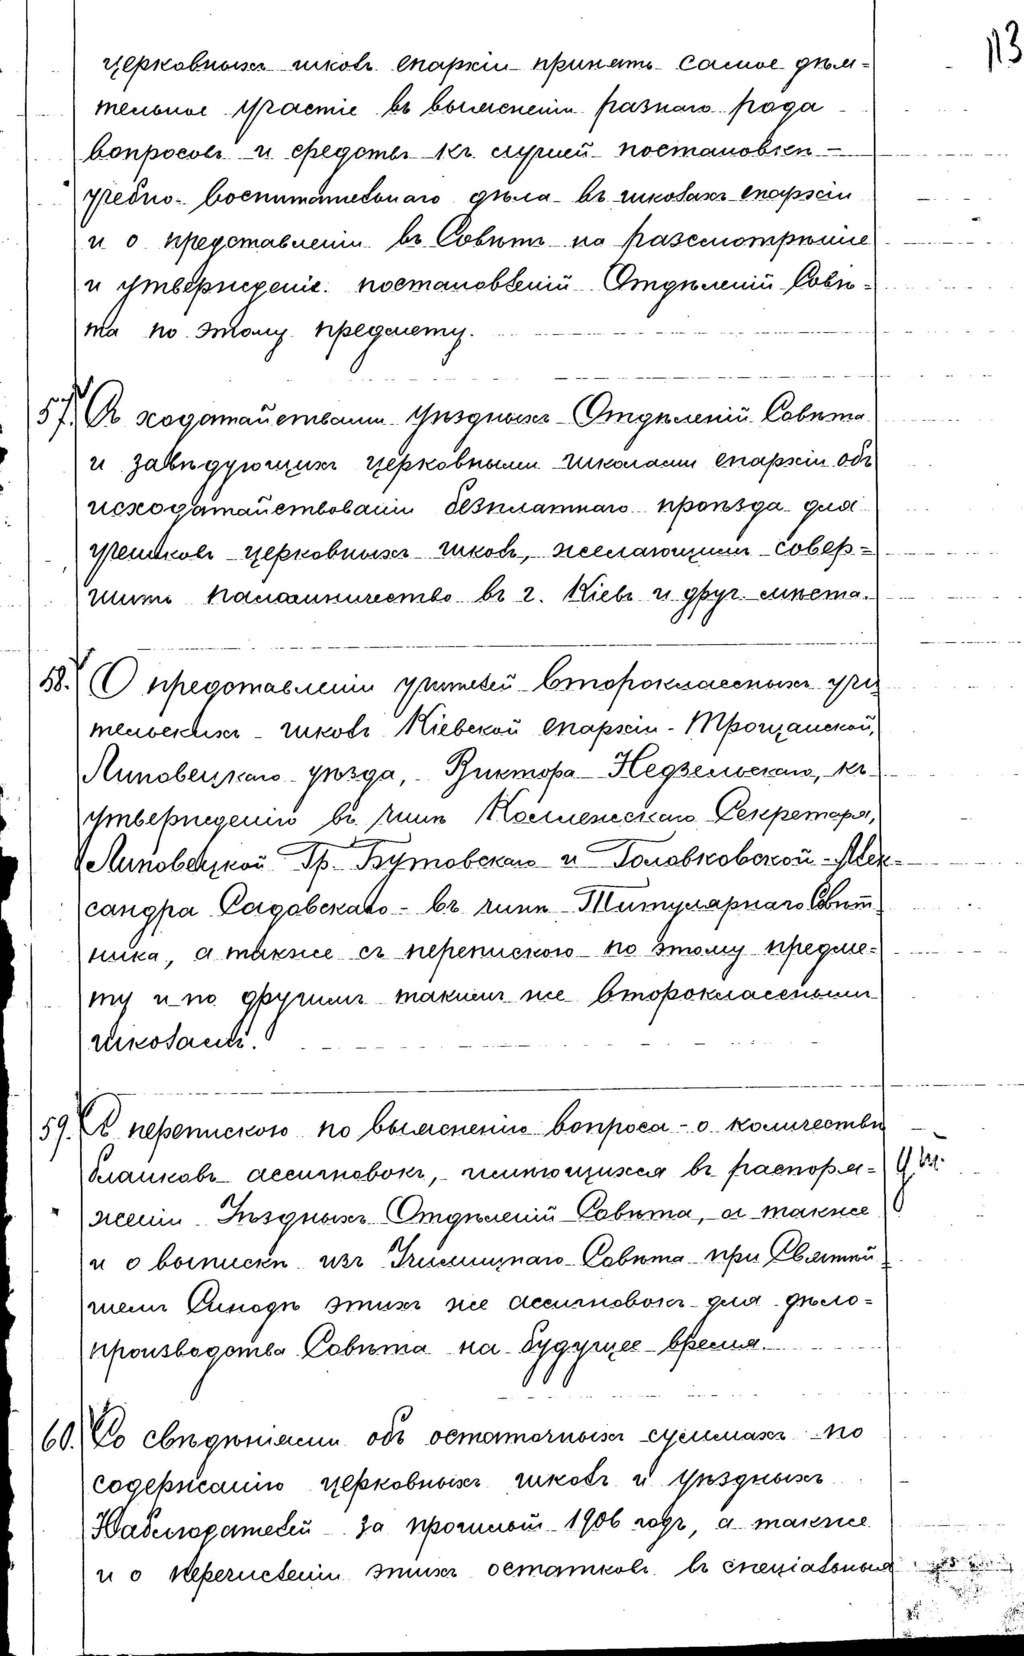 113
церковныхъ школъ епархіи принять самое дѣя-
тельное участіе въ выясненіи разнаго рода
вопросовъ и средствъ къ лучшей постановкѣ
учебно-воспитательнаго дѣла въ школахъ епархіи
и о представленіи въ Совѣтъ на разсмотрѣніе
и утвержденіе постановленій Отдѣленій Совѣ-
та по этому предмету.
57. Съ ходатайствами Уѣздныхъ Отдѣленій Совѣта
и завѣдующихъ церковными школами епархіи объ
исходатайствованіи безплатнаго проѣзда для
учениковъ церковныхъ школъ, желающимъ совер-
шить паломничество въ г. Кіевъ и друг. мѣста.
58. О представленіи учителей второклассныхъ учи
тельскихъ школъ Кіевской епархіи - Трощанской,
Липовецкаго уѣзда, Виктора Недзельскаго, къ
утвержденію въ чинѣ Коллежскаго Секретаря,
Липовецкой Гр. Бутовскаго и Головковской - Алек-
сандра Садовскаго - въ чинѣ Титулярнаго Совѣт
ника, а также съ перепискою по этому предме-
ту и по другимъ такимъ же второкласснымъ
школамъ.
59. Съ перепискою по выясненію вопроса - о количествѣ
бланковъ ассигновокъ, имѣющихся въ распоря-
женіи Уѣздныхъ Отдѣленій Совѣта, а также
и о выпискѣ изъ Училищнаго Совѣта при Святѣй
шемъ Синодѣ этихъ же ассигновокъ для дѣло-
производства Совѣта на будущее время.
60. Со свѣдѣніями объ остаточныхъ суммахъ по
содержанію церковныхъ школъ и уѣздныхъ
Наблюдателей за прошлый 1906 годъ, а также
и о перечисленіи этихъ остатковъ въ спеціальныя